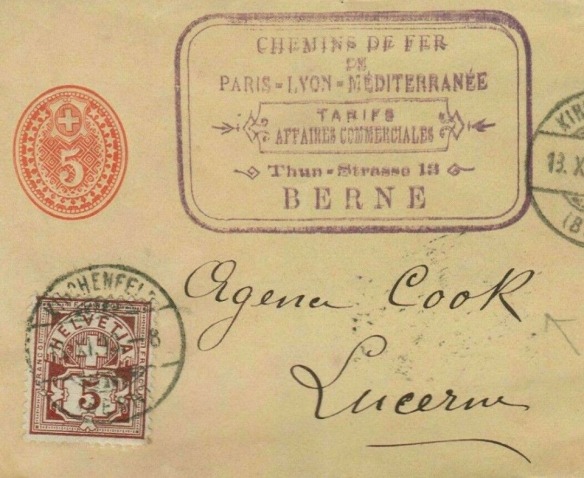 CHEMINS DE FER
DE
PARIS=LYON=MÉDITERRANÉE
TARIFS
AFFAIRES COMMERCIALES
Thun=Strasse 13
BERNE
5
13. X
HELVETIA
FRANCO
5
Cook
Lucerne